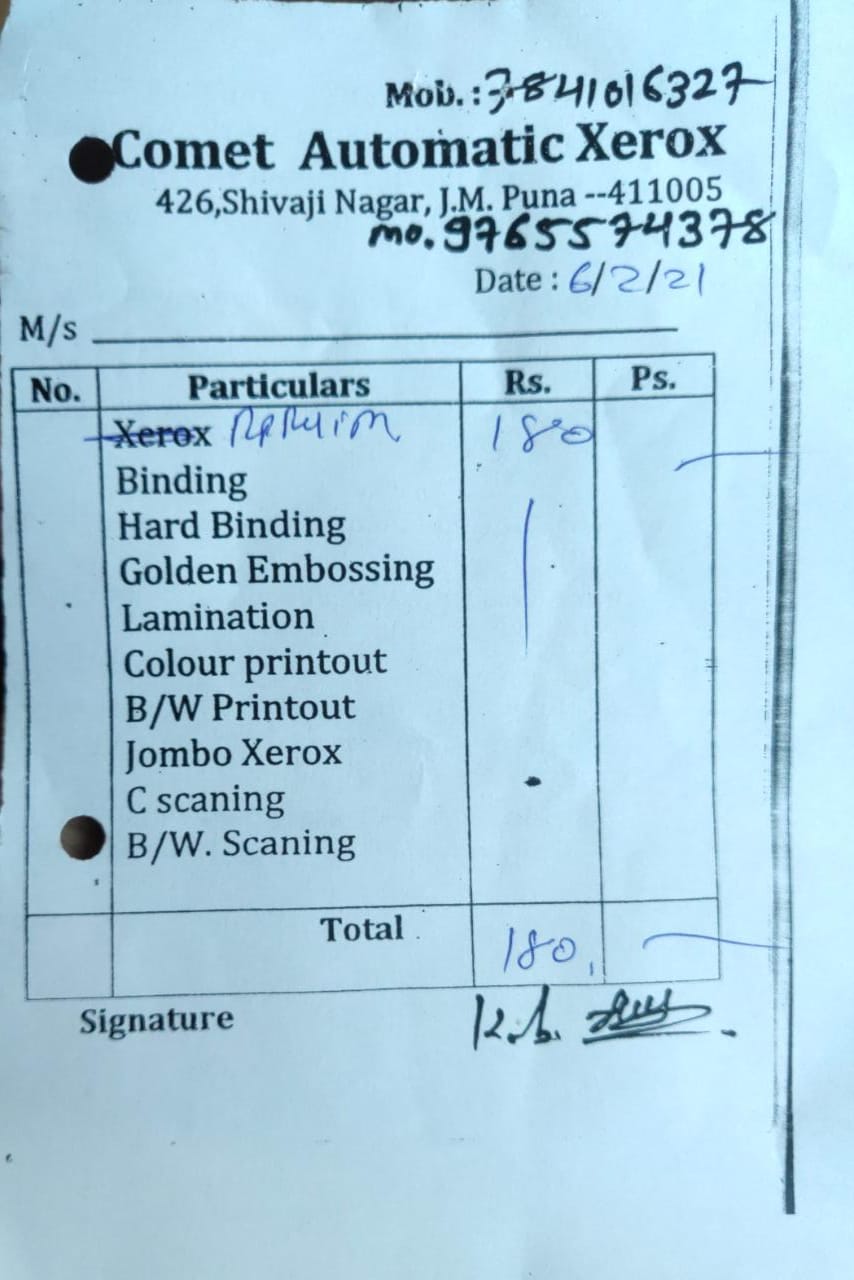 Mob.: 7841016327
Comet Automatic Xerox
426,Shivaji Nagar, J.M. Puna --411005
mo. 9765574378
Date : 6/2/21
M/s
No. Particulars Rs. Ps.
Xerox 180
Binding
Hard Binding
Golden Embossing
Lamination
Colour printout
B/W Printout
Jombo Xerox
C scaning
B/W. Scaning
Total 180
Signature